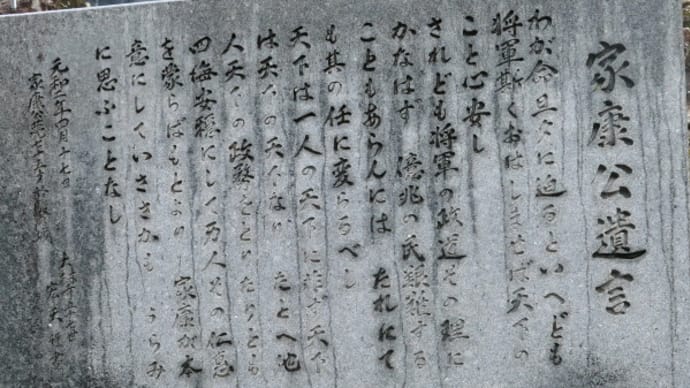 家康公遺言
わが命旦夕に迫るといへども
将軍斯くおはしませば天下の
こと心安し
されども将軍の政道その理に
かなはず 億兆の民艱難する
こともあらんには たれにて
も其の任に変らるべし
天下は一人の天下に非ず天下
は天下の天下なり たとへ他
人天下の政務をとりたりとも
四海安穏にして万人その仁恩
を蒙らばもとより 家康が本
意にしていささかも うらみ
に思ふことなし
元和二年四月十七日
家康公